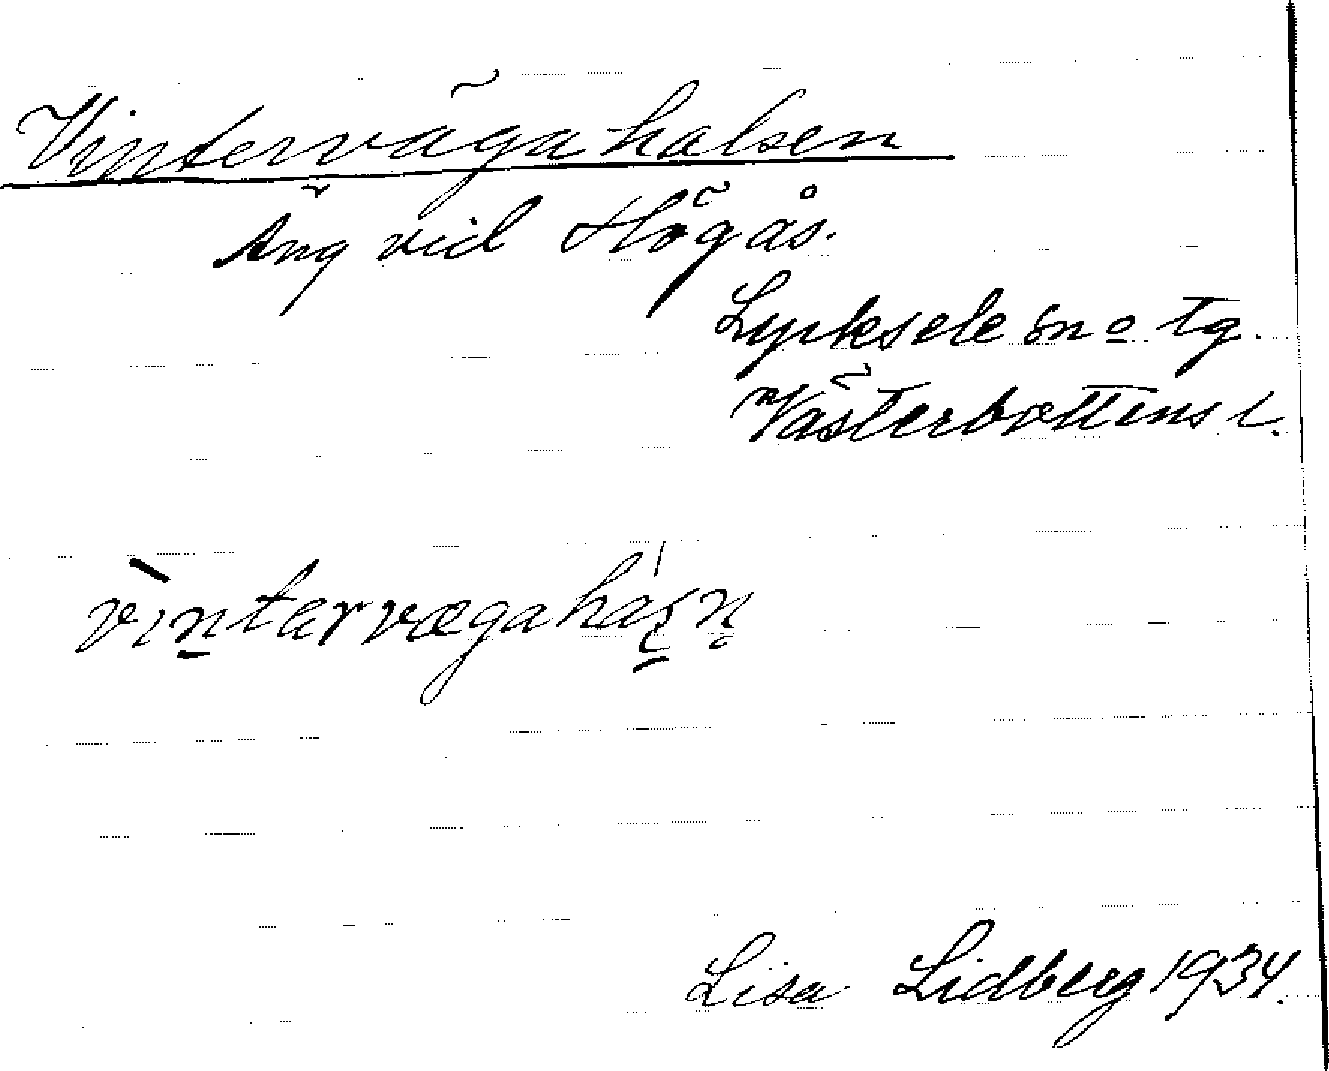 Vintervägahalsen
Äng vid Högås.
Lycksele sn o tg.
Västerbottens l.
Lisa Lidberg 1934.